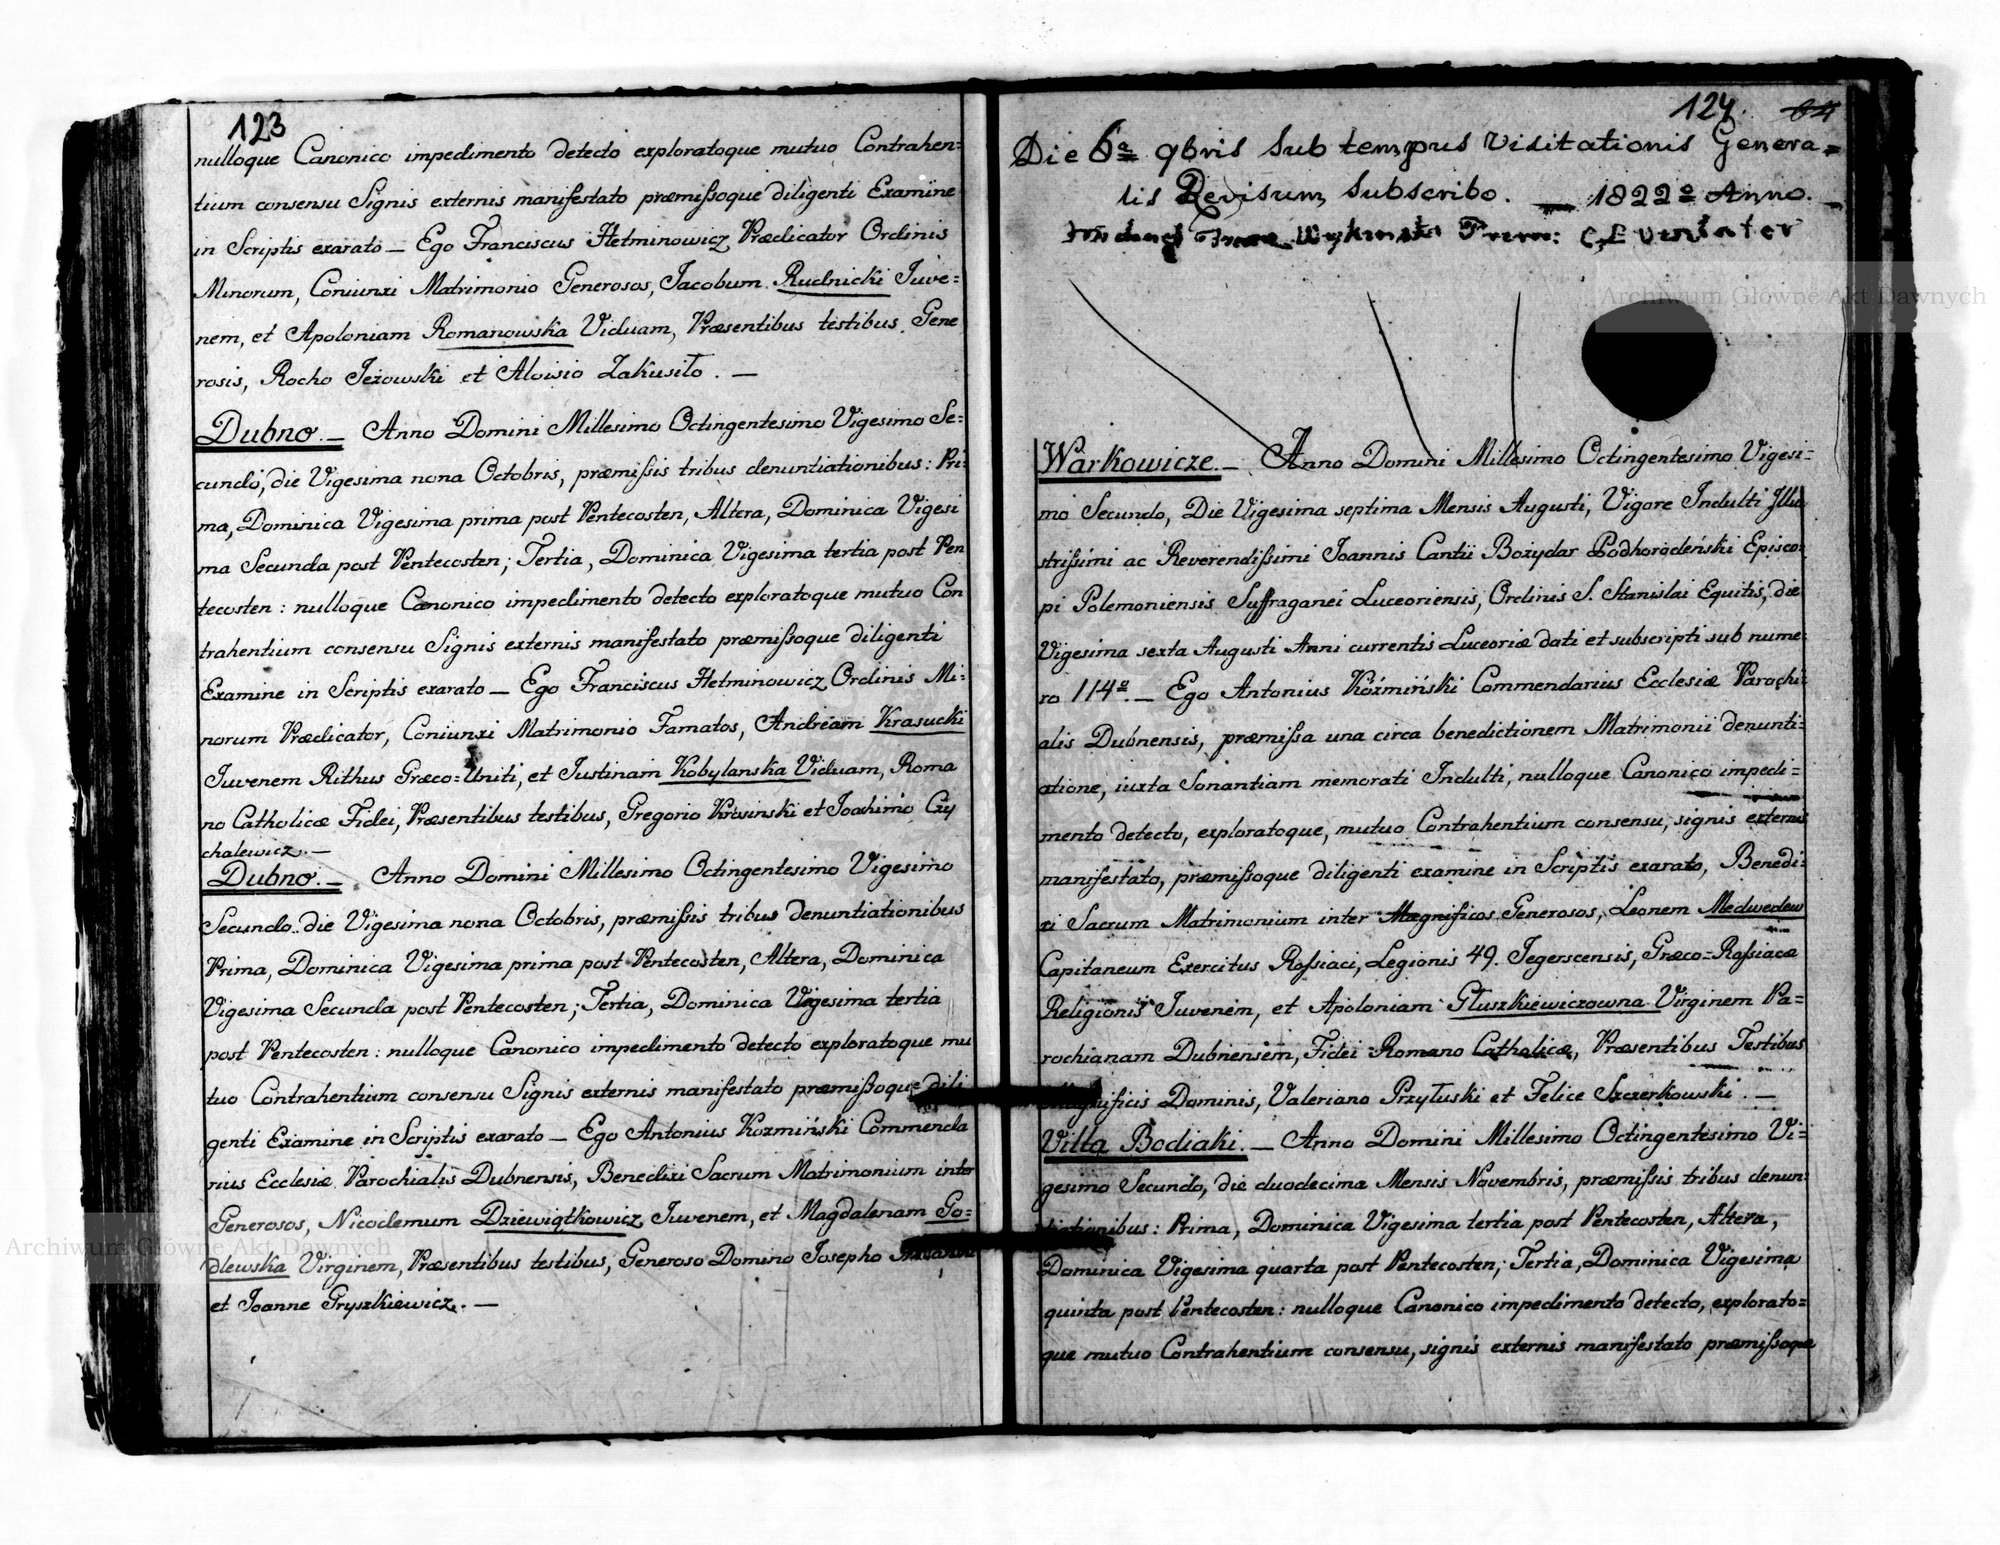 123
nulloque Canonico impedimento detecto exploratoque mutuo Contrahen=
tium consensu Signis externis manifestato præmißoque diligenti Examine
in Scriptis exarato — Ego Franciscus Hetminowicz Prædicator Ordinis
Minorum, Coniunxi Matrimonio Generosos, Jacobum Rudnicki Juve=
nem, et Apoloniam Romanowska Viduam, Præsentibus testibus, Gene
rosis, Rocho Jeżowski et Aloisio Zakusiło. —
Dubno. — Anno Domini Millesimo Octingentesimo Vigesimo Se=
cundo, die Vigesima nona Octobris, præmißis tribus denuntiationibus: Pri
ma, Dominica Vigesima prima post Pentecosten, Altera, Dominica Vigesi
ma Secunda post Pentecosten; Tertia, Dominica Vigesima tertia post Pen
tecosten: nulloque Canonico impedimento detecto exploratoque mutuo Con
trahentium consensu Signis externis manifestato præmißoque diligenti
Examine in Scriptis exarato — Ego Franciscus Hetminowicz Ordinis Mi=
norum Prædicator, Coniunxi Matrimonio Famatos, Andream Krasucki
Iuvenem Rithus Græco=Uniti, et Iustinam Kobylanska Viduam, Roma
no Catholicæ Fidei, Præsentibus testibus, Gregorio Krosinski et Joachimo Czy
chalewicz. —
Dubno. — Anno Domini Millesimo Octingentesimo Vigesimo
Secundo die Vigesima nona Octobris, præmißis tribus denuntiationibus
Prima, Dominica Vigesima prima post Pentecosten, Altera, Dominica
Vigesima Secunda post Pentecosten; Tertia, Dominica Vigesima tertia
post Pentecosten: nulloque Canonico impedimento detecto exploratoque mu
tuo Contrahentium consensu Signis externis manifestato præmißoque dili
genti Examine in Scriptis exarato — Ego Antonius Kozmiński Commenda
rius Ecclesiæ Parochialis Dubnensis, Benedixi Sacrum Matrimonium inter
Generosos, Nicodemum Dziewiątkowicz Iuvenem, et Magdalenam Go=
dlewska Virginem, Præsentibus testibus, Generoso Domino Iosepho
et Joanne Gryszkiewicz. —
124. 64
Die 6a 9bris Sub tempus Visitationis Genera=
lis Revisum Subscribo. — 1822o Anno. —
Warkowicze. — Anno Domini Millesimo Octingentesimo Vigesi=
mo Secundo, Die Vigesima septima Mensis Augusti, Vigore Indulti Illu
strißimi ac Reverendißimi Ioannis Cantii Bożydar Podhorodeński Episco=
pi Polemoniensis Suffraganei Luceoriensis, Ordinis S. Stanislai Equitis, die
Vigesima sexta Augusti Anni currentis Luceoriæ dati et subscripti sub nume=
ro 114o. — Ego Antonius Koźmiński Commendarius Ecclesiæ Parochi=
alis Dubnensis, præmißa una circa benedictionem Matrimonii denunti=
atione, iuxta Sonantiam memorati Indulti, nulloque Canonico impedi=
mento detecto, exploratoque, mutuo Contrahentium consensu, signis externis
manifestato, præmißoque diligenti examine in Scriptis exarato, Benedi=
xi Sacrum Matrimonium inter Magnificos Generosos, Leonem Medwedew
Capitaneum Exercitus Roßiaci, Legionis 49. Jegerscensis, Græco=Roßiacæ
Religionis Iuvenem, et Apoloniam Głuszkiewiczowna Virginem Pa=
rochianam Dubnensem, Fidei Romano Catholicæ, Præsentibus Testibus
Magnificis Dominis, Valeriano Przyłuski et Felice Szczerkowski. —
Villa Bodiaki. — Anno Domini Millesimo Octingentesimo Vi=
gesimo Secundo, die duodecima Mensis Novembris, præmißis tribus denun=
tiationibus: Prima, Dominica Vigesima tertia post Pentecosten, Altera,
Dominica Vigesima quarta post Pentecosten; Tertia, Dominica Vigesima
quinta post Pentecosten: nulloque Canonico impedimento detecto, explorato=
que mutuo Contrahentium consensu, signis externis manifestato præmißoque
Archiwum Główne Akt Dawnych
Archiwum Główne Akt Dawnych